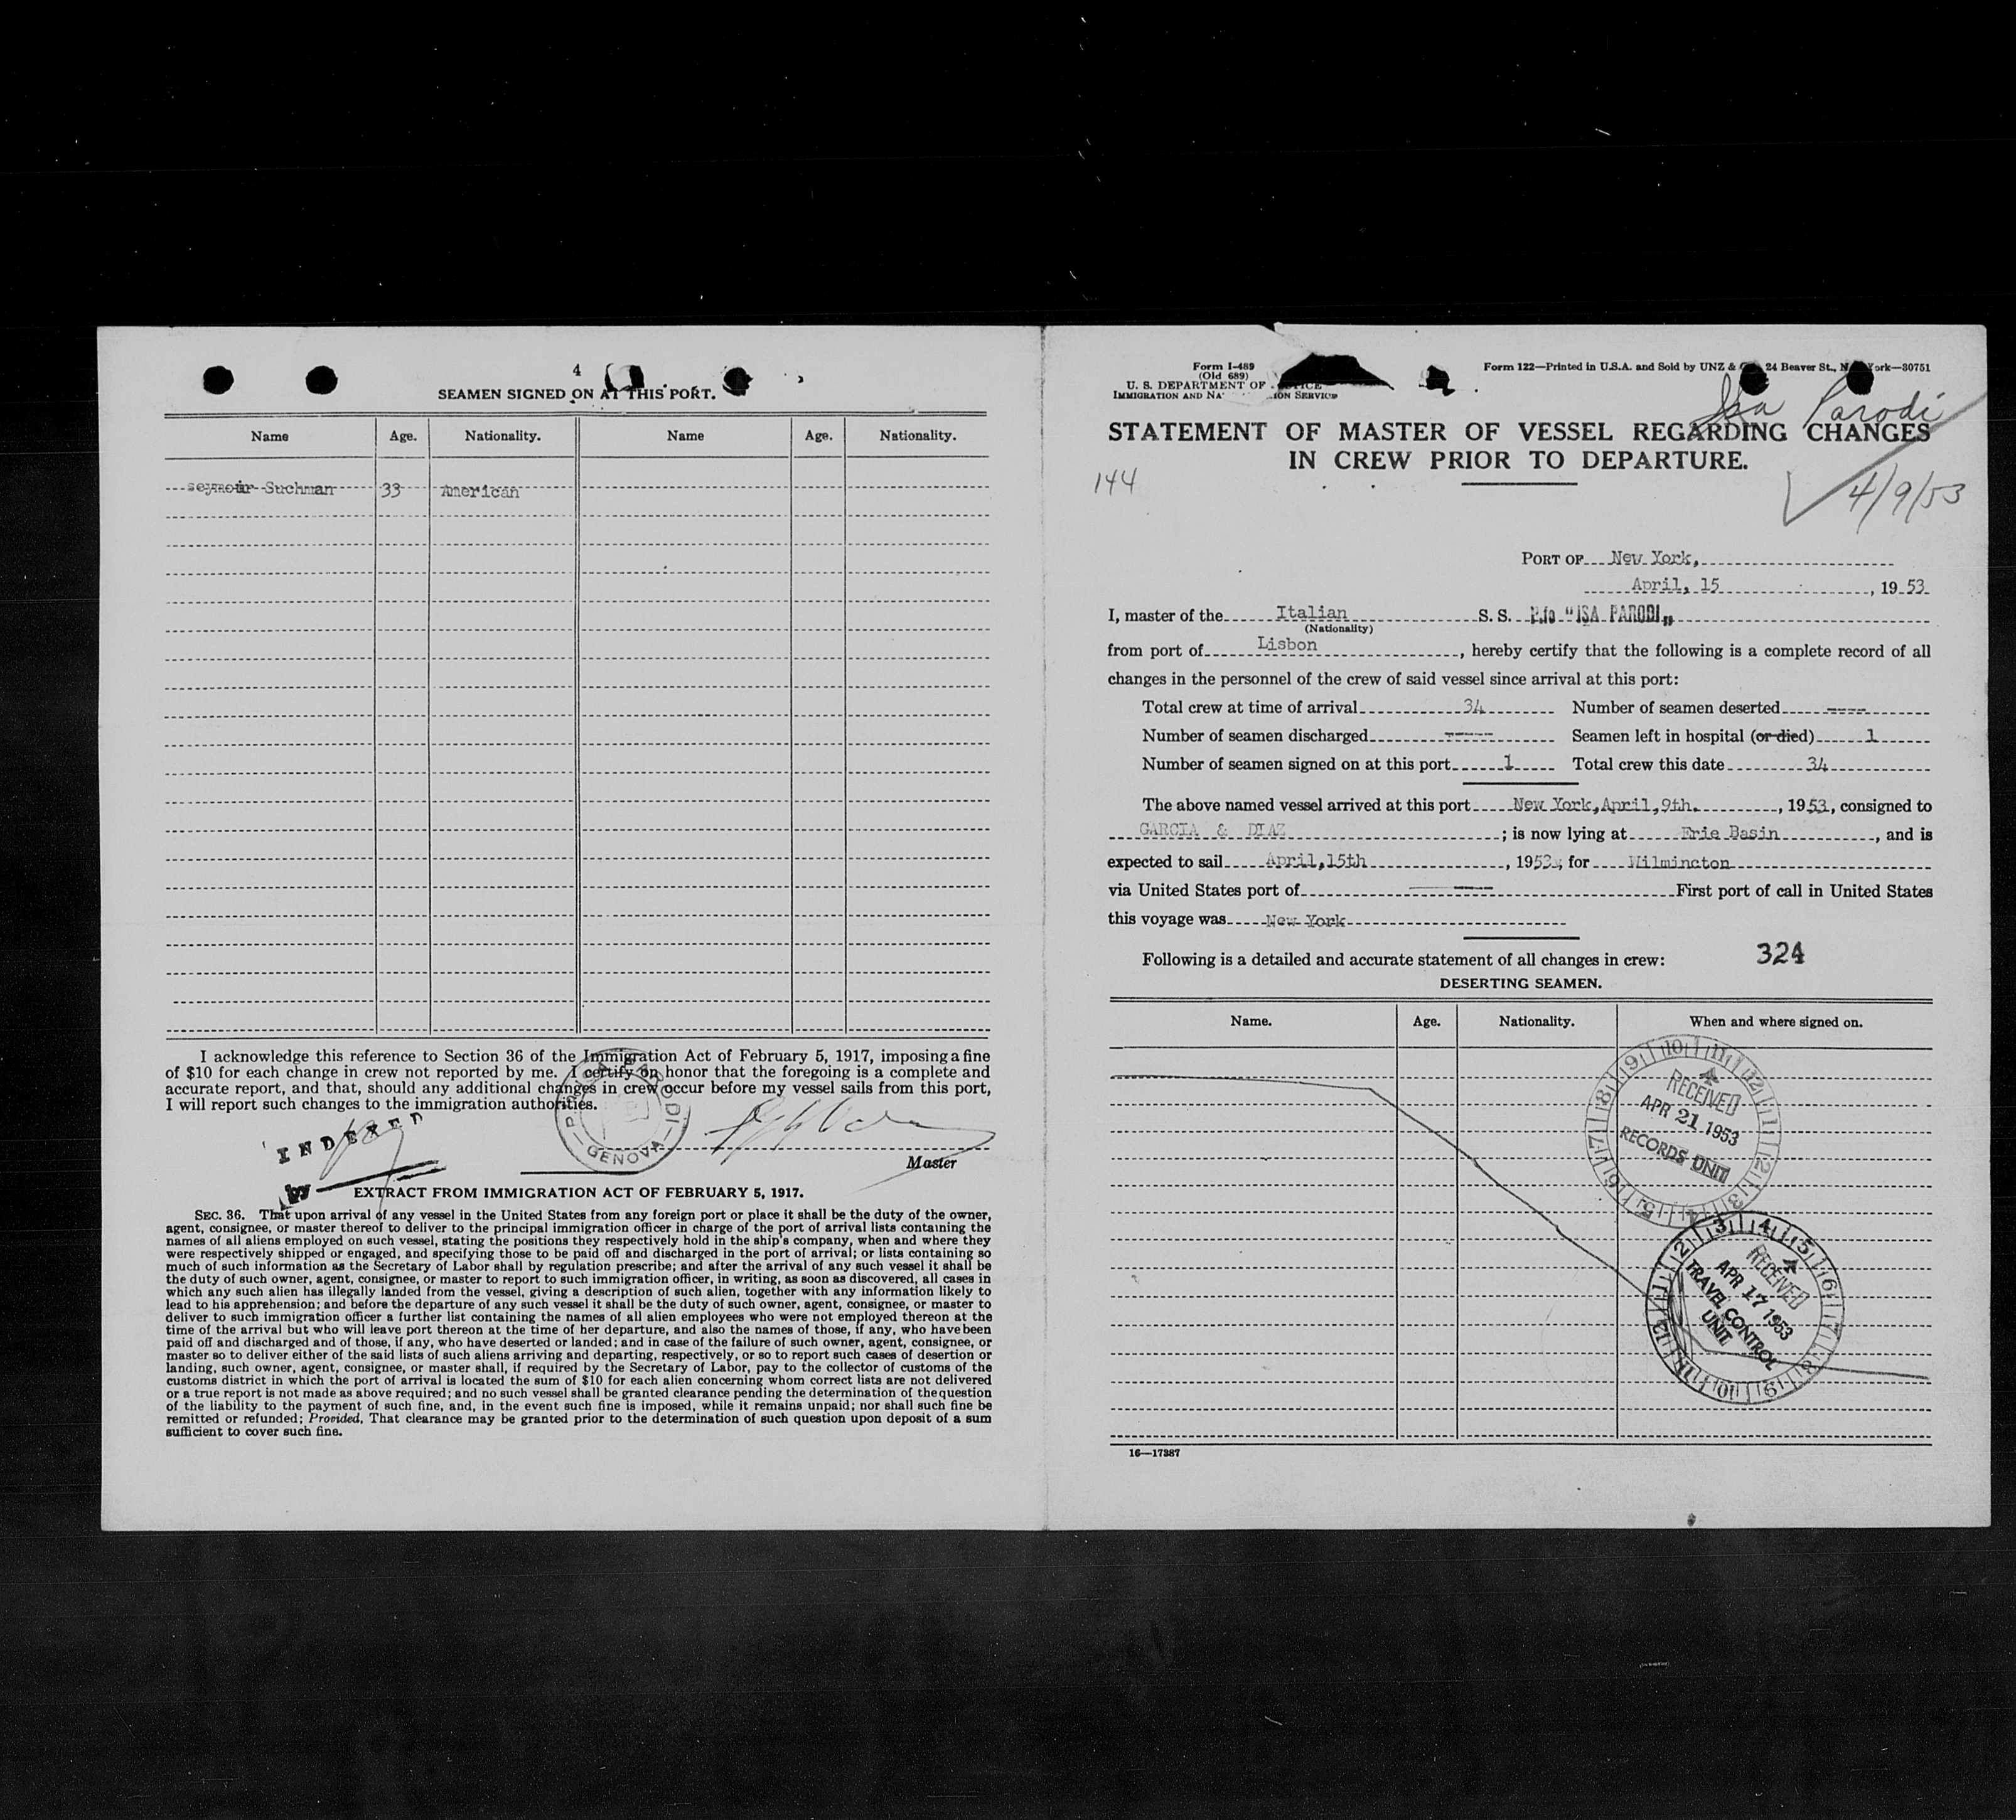 4
SEAMEN SIGNED ON AT THIS PORT.
Name Age. Nationality. Name Age. Nationality.
Seymour Suchman 33 American
I acknowledge this reference to Section 36 of the Immigration Act of February 5, 1917, imposing a fine
of $10 for each change in crew not reported by me. I certify on honor that the foregoing is a complete and
accurate report, and that, should any additional changes in crew occur before my vessel sails from this port,
I will report such changes to the immigration authorities.
INDEXED
by
GENOVA
Master
EXTRACT FROM IMMIGRATION ACT OF FEBRUARY 5, 1917.
SEC. 36. That upon arrival of any vessel in the United States from any foreign port or place it shall be the duty of the owner,
agent, consignee, or master thereof to deliver to the principal immigration officer in charge of the port of arrival lists containing the
names of all aliens employed on such vessel, stating the positions they respectively hold in the ship's company, when and where they
were respectively shipped or engaged, and specifying those to be paid off and discharged in the port of arrival; or lists containing so
much of such information as the Secretary of Labor shall by regulation prescribe; and after the arrival of any such vessel it shall be
the duty of such owner, agent, consignee, or master to report to such immigration officer, in writing, as soon as discovered, all cases in
which any such alien has illegally landed from the vessel, giving a description of such alien, together with any information likely to
lead to his apprehension; and before the departure of any such vessel it shall be the duty of such owner, agent, consignee, or master to
deliver to such immigration officer a further list containing the names of all alien employees who were not employed thereon at the
time of the arrival but who will leave port thereon at the time of her departure, and also the names of those, if any, who have been
paid off and discharged and of those, if any, who have deserted or landed; and in case of the failure of such owner, agent, consignee, or
master so to deliver either of the said lists of such aliens arriving and departing, respectively, or so to report such cases of desertion or
landing, such owner, agent, consignee, or master shall, if required by the Secretary of Labor, pay to the collector of customs of the
customs district in which the port of arrival is located the sum of $10 for each alien concerning whom correct lists are not delivered
or a true report is not made as above required; and no such vessel shall be granted clearance pending the determination of the question
of the liability to the payment of such fine, and, in the event such fine is imposed, while it remains unpaid; nor shall such fine be
remitted or refunded; Provided, That clearance may be granted prior to the determination of such question upon deposit of a sum
sufficient to cover such fine.
Form I-489
(Old 689)
U. S. DEPARTMENT OF
IMMIGRATION AND SERVICE
Form 122—Printed in U.S.A. and Sold by UNZ & 24 Beaver St., 30751
Isa Parodi
STATEMENT OF MASTER OF VESSEL REGARDING CHANGES
IN CREW PRIOR TO DEPARTURE.
144
4/9/53
PORT OF New York,
April, 15, 1953
I, master of the Italian S. S. P.fo "ISA PARODI"
(Nationality)
from port of Lisbon, hereby certify that the following is a complete record of all
changes in the personnel of the crew of said vessel since arrival at this port:
Total crew at time of arrival 34 Number of seamen deserted ----
Number of seamen discharged ----- Seamen left in hospital (or died) 1
Number of seamen signed on at this port 1 Total crew this date 34
The above named vessel arrived at this port New York, April, 9th., 1953, consigned to
GARCIA & DIAZ; is now lying at Erie Basin, and is
expected to sail April, 15th, 1953, for Wilmington
via United States port of ---- First port of call in United States
this voyage was New York
Following is a detailed and accurate statement of all changes in crew: 324
DESERTING SEAMEN.
Name. Age. Nationality. When and where signed on.
RECEIVED
APR 21 1953
RECORDS UNIT
RECEIVED
APR 17 1953
TRAVEL CONTROL
UNIT
16—17387